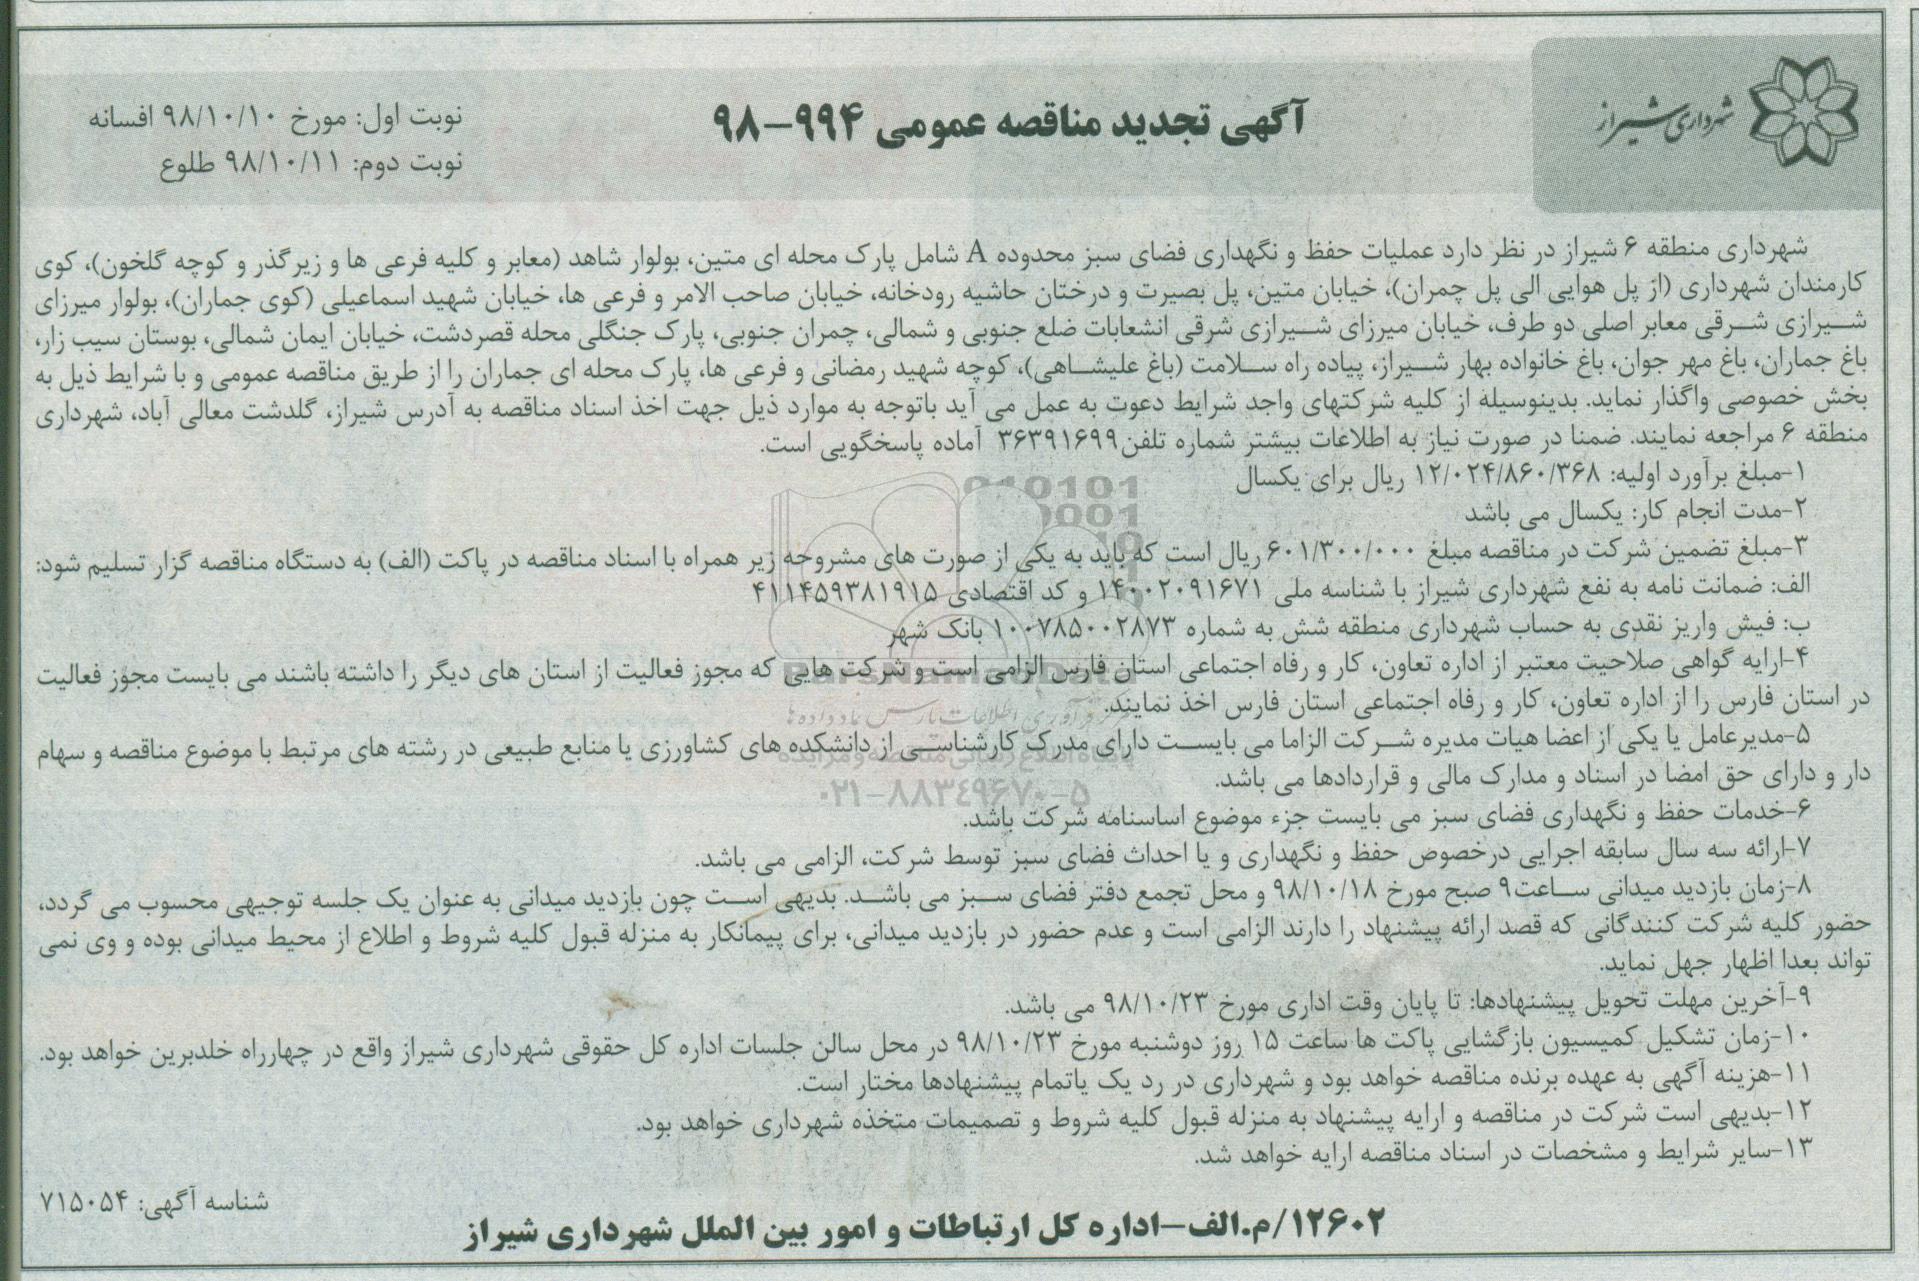 شهرداری شیراز
آگهی تجدید مناقصه عمومی ۹۹۴-۹۸
نوبت اول: مورخ ۹۸/۱۰/۱۰ افسانه
نوبت دوم: ۹۸/۱۰/۱۱ طلوع
شهرداری منطقه ۶ شیراز در نظر دارد عملیات حفظ و نگهداری فضای سبز محدوده A شامل پارک محله ای متین، بولوار شاهد (معابر و کلیه فرعی ها و زیرگذر و کوچه گلخون)، کوی
کارمندان شهرداری (از پل هوایی الی پل چمران)، خیابان متین، پل بصیرت و درختان حاشیه رودخانه، خیابان صاحب الامر و فرعی ها، خیابان شهید اسماعیلی (کوی جماران)، بولوار میرزای
شیرازی شرقی معابر اصلی دو طرف، خیابان میرزای شیرازی شرقی انشعابات ضلع جنوبی و شمالی، چمران جنوبی، پارک جنگلی محله قصردشت، خیابان ایمان شمالی، بوستان سیب زار،
باغ جماران، باغ مهر جوان، باغ خانواده بهار شیراز، پیاده راه سلامت (باغ علیشاهی)، کوچه شهید رمضانی و فرعی ها، پارک محله ای جماران را از طریق مناقصه عمومی و با شرایط ذیل به
بخش خصوصی واگذار نماید. بدینوسیله از کلیه شرکتهای واجد شرایط دعوت به عمل می آید باتوجه به موارد ذیل جهت اخذ اسناد مناقصه به آدرس شیراز، گلدشت معالی آباد، شهرداری
منطقه ۶ مراجعه نمایند. ضمنا در صورت نیاز به اطلاعات بیشتر شماره تلفن۳۶۳۹۱۶۹۹ آماده پاسخگویی است.
۱-مبلغ برآورد اولیه: ۱۲/۰۲۴/۸۶۰/۳۶۸ ریال برای یکسال
۲-مدت انجام کار: یکسال می باشد
۳-مبلغ تضمین شرکت در مناقصه مبلغ ۶۰۱/۳۰۰/۰۰۰ ریال است که باید به یکی از صورت های مشروحه زیر همراه با اسناد مناقصه در پاکت (الف) به دستگاه مناقصه گزار تسلیم شود:
الف: ضمانت نامه به نفع شهرداری شیراز با شناسه ملی ۱۴۰۰۲۰۹۱۶۷۱ و کد اقتصادی ۴۱۱۴۵۹۳۸۱۹۱۵
ب: فیش واریز نقدی به حساب شهرداری منطقه شش به شماره ۱۰۰۷۸۵۰۰۲۸۷۳ بانک شهر
۴-ارایه گواهی صلاحیت معتبر از اداره تعاون، کار و رفاه اجتماعی استان فارس الزامی است و شرکت هایی که مجوز فعالیت از استان های دیگر را داشته باشند می بایست مجوز فعالیت
در استان فارس را از اداره تعاون، کار و رفاه اجتماعی استان فارس اخذ نمایند.
۵-مدیرعامل یا یکی از اعضا هیات مدیره شرکت الزاما می بایست دارای مدرک کارشناسی از دانشکده های کشاورزی یا منابع طبیعی در رشته های مرتبط با موضوع مناقصه و سهام
دار و دارای حق امضا در اسناد و مدارک مالی و قراردادها می باشد.
۶-خدمات حفظ و نگهداری فضای سبز می بایست جزء موضوع اساسنامه شرکت باشد.
۷-ارائه سه سال سابقه اجرایی درخصوص حفظ و نگهداری و یا احداث فضای سبز توسط شرکت، الزامی می باشد.
۸-زمان بازدید میدانی ساعت۹ صبح مورخ ۹۸/۱۰/۱۸ و محل تجمع دفتر فضای سبز می باشد. بدیهی است چون بازدید میدانی به عنوان یک جلسه توجیهی محسوب می گردد،
حضور کلیه شرکت کنندگانی که قصد ارائه پیشنهاد را دارند الزامی است و عدم حضور در بازدید میدانی، برای پیمانکار به منزله قبول کلیه شروط و اطلاع از محیط میدانی بوده و وی نمی
تواند بعدا اظهار جهل نماید.
۹-آخرین مهلت تحویل پیشنهادها: تا پایان وقت اداری مورخ ۹۸/۱۰/۲۳ می باشد.
۱۰-زمان تشکیل کمیسیون بازگشایی پاکت ها ساعت ۱۵ روز دوشنبه مورخ ۹۸/۱۰/۲۳ در محل سالن جلسات اداره کل حقوقی شهرداری شیراز واقع در چهارراه خلدبرین خواهد بود.
۱۱-هزینه آگهی به عهده برنده مناقصه خواهد بود و شهرداری در رد یک یاتمام پیشنهادها مختار است.
۱۲-بدیهی است شرکت در مناقصه و ارایه پیشنهاد به منزله قبول کلیه شروط و تصمیمات متخذه شهرداری خواهد بود.
۱۳-سایر شرایط و مشخصات در اسناد مناقصه ارایه خواهد شد.
شناسه آگهی: ۷۱۵۰۵۴
۱۲۶۰۲/م.الف-اداره کل ارتباطات و امور بین الملل شهرداری شیراز
ParsNamadData
پایگاه اطلاع رسانی مناقصه و مزایده
۰۲۱-۸۸۳۴۹۶۷۰-۵